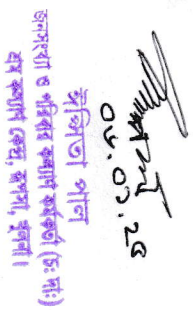 ০৬.০৩.২৫
সুজিত পাল
জনসংখ্যা ও পরিবার কল্যাণ কর্মকর্তা (চঃ দাঃ)
শ্রম কল্যাণ কেন্দ্র, রূপসা, খুলনা।